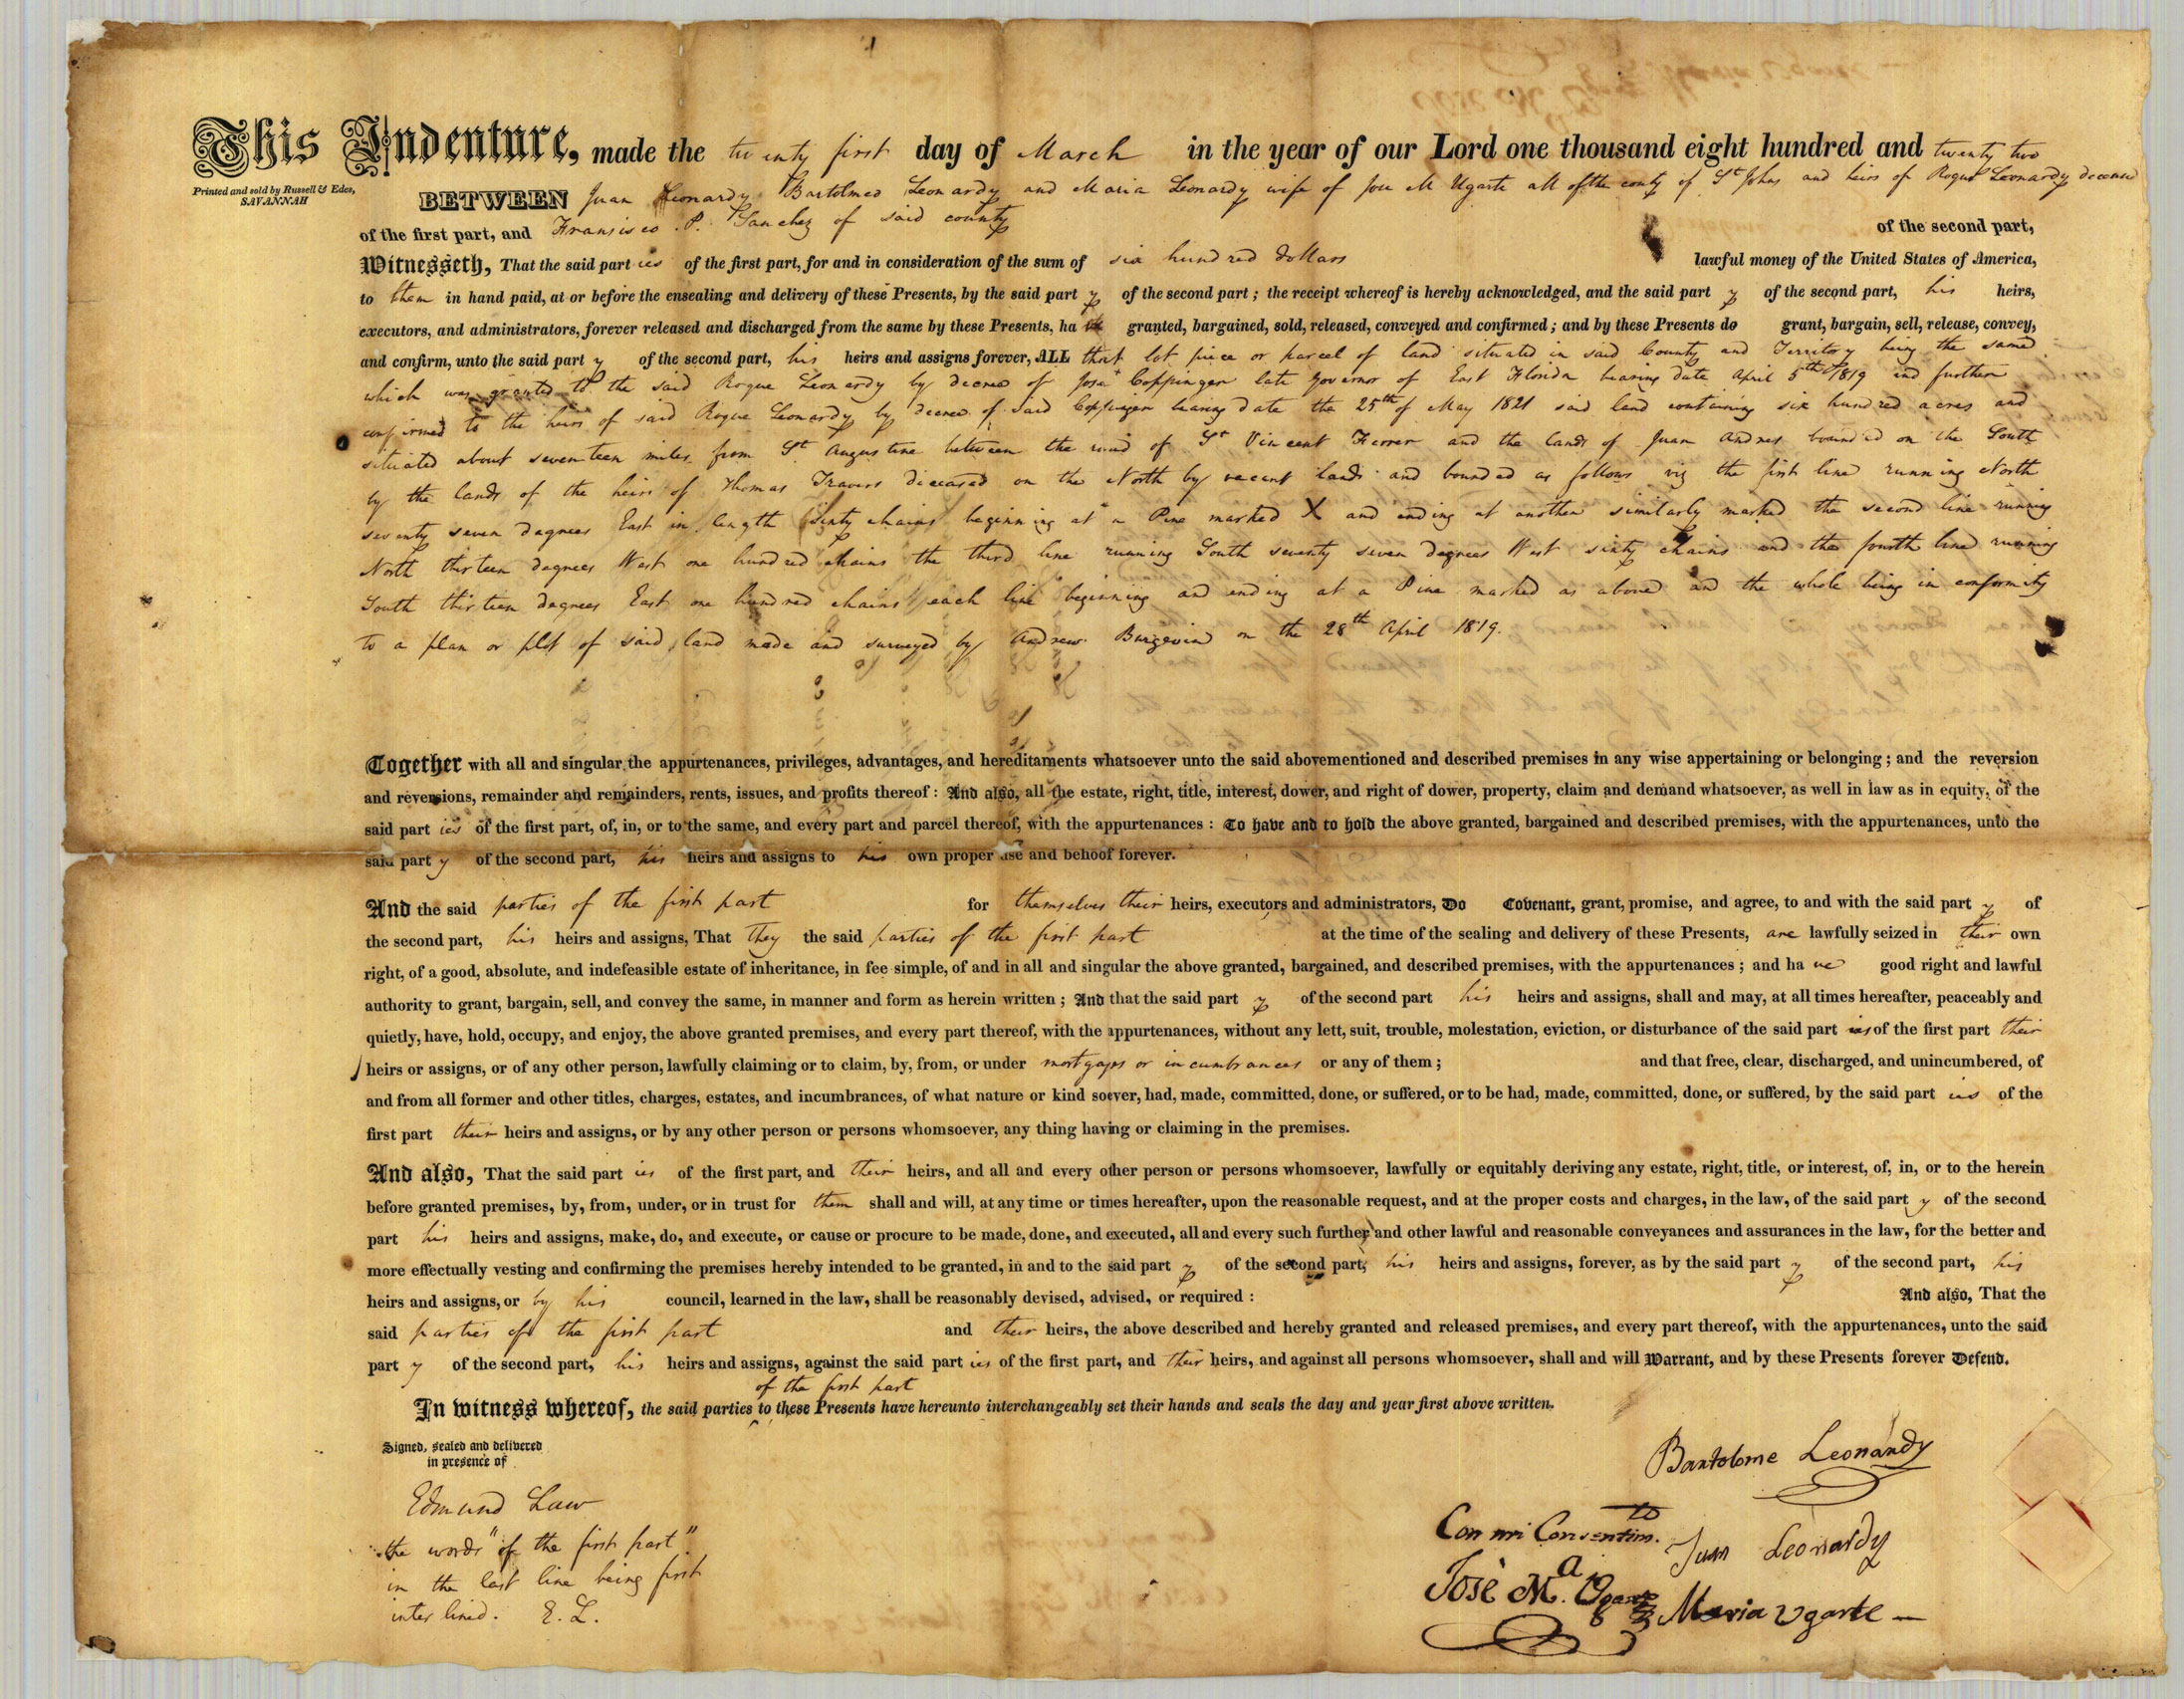 This Indenture, made the twenty first day of March in the year of our Lord one thousand eight hundred and twenty two
Printed and sold by Russell & Edes,
SAVANNAH
BETWEEN Juan Leonardy Bartolmeo Leonardy and Maria Leonardy wife of Jose M Ugarte all of the conty of St Johns and heirs of Rogue Leonardy deceased
of the first part, and Fransisco P. Sanchez of said county of the second part,
Witnesseth, That the said part ies of the first part, for and in consideration of the sum of six hundred dollars lawful money of the United States of America,
to them in hand paid, at or before the ensealing and delivery of these Presents, by the said part y of the second part; the receipt whereof is hereby acknowledged, and the said part y of the second part, his heirs,
executors, and administrators, forever released and discharged from the same by these Presents, ha granted, bargained, sold, released, conveyed and confirmed; and by these Presents do grant, bargain, sell, release, convey,
and confirm, unto the said part y of the second part, his heirs and assigns forever, ALL that lot piece or parcel of land situated in said County and Territory being the same
which was granted to the said Rogue Leonardy by decree of Jose Coppinger late governor of East Florida bearing date April 5th 1819 and further
confirmed to the heirs of said Rogue Leonardy by decree of said Coppinger bearing date the 25th of May 1821 said land containing six hundred acres and
situated about seventeen miles from St Augustine between the road of St Vincent Ferrer and the lands of Juan Andres bounded on the South
by the lands of the heirs of Thomas Travers deceased on the North by vacant lands and bounded as follows viz the first line running North
seventy seven degrees East in length sixty chains beginning at a Pine marked X and ending at another similarly marked the second line running
North thirteen degrees West one hundred chains the third line running South seventy seven degrees West sixty chains and the fourth line running
South thirteen degrees East one hundred chains each line beginning and ending at a Pine marked as above and the whole being in conformity
to a plan or plot of said land made and surveyed by Andrew Burgevin on the 28th April 1819.
Together with all and singular the appurtenances, privileges, advantages, and hereditaments whatsoever unto the said abovementioned and described premises in any wise appertaining or belonging; and the reversion
and reversions, remainder and remainders, rents, issues, and profits thereof: And also, all the estate, right, title, interest, dower, and right of dower, property, claim and demand whatsoever, as well in law as in equity, of the
said part ies of the first part, of, in, or to the same, and every part and parcel thereof, with the appurtenances: To have and to hold the above granted, bargained and described premises, with the appurtenances, unto the
said part y of the second part, his heirs and assigns to his own proper use and behoof forever.
And the said parties of the first part for themselves their heirs, executors and administrators, Do Covenant, grant, promise, and agree, to and with the said part y of
the second part, his heirs and assigns, That they the said parties of the first part at the time of the sealing and delivery of these Presents, are lawfully seized in their own
right, of a good, absolute, and indefeasible estate of inheritance, in fee simple, of and in all and singular the above granted, bargained, and described premises, with the appurtenances; and ha ve good right and lawful
authority to grant, bargain, sell, and convey the same, in manner and form as herein written; And that the said part y of the second part his heirs and assigns, shall and may, at all times hereafter, peaceably and
quietly, have, hold, occupy, and enjoy, the above granted premises, and every part thereof, with the appurtenances, without any lett, suit, trouble, molestation, eviction, or disturbance of the said part ies of the first part their
heirs or assigns, or of any other person, lawfully claiming or to claim, by, from, or under mortgages or incumbrances or any of them; and that free, clear, discharged, and unincumbered, of
and from all former and other titles, charges, estates, and incumbrances, of what nature or kind soever, had, made, committed, done, or suffered, or to be had, made, committed, done, or suffered, by the said part ies of the
first part their heirs and assigns, or by any other person or persons whomsoever, any thing having or claiming in the premises.
And also, That the said part ies of the first part, and their heirs, and all and every other person or persons whomsoever, lawfully or equitably deriving any estate, right, title, or interest, of, in, or to the herein
before granted premises, by, from, under, or in trust for them shall and will, at any time or times hereafter, upon the reasonable request, and at the proper costs and charges, in the law, of the said part y of the second
part his heirs and assigns, make, do, and execute, or cause or procure to be made, done, and executed, all and every such further and other lawful and reasonable conveyances and assurances in the law, for the better and
more effectually vesting and confirming the premises hereby intended to be granted, in and to the said part y of the second part, his heirs and assigns, forever, as by the said part y of the second part, his
heirs and assigns, or by his council, learned in the law, shall be reasonably devised, advised, or required: And also, That the
said parties of the first part and their heirs, the above described and hereby granted and released premises, and every part thereof, with the appurtenances, unto the said
part y of the second part, his heirs and assigns, against the said part ies of the first part, and their heirs, and against all persons whomsoever, shall and will Warrant, and by these Presents forever Defend.
of the first part
In witness whereof, the said parties to these Presents have hereunto interchangeably set their hands and seals the day and year first above written.
Signed, sealed and delivered
in presence of
Edmund Law
the words "of the first part"
in the last line being first
interlined. E. L.
Bartolome Leonardy
Con mi Consentim.to
Juan Leonardy
José M.a Ugarte
Maria Ugarte